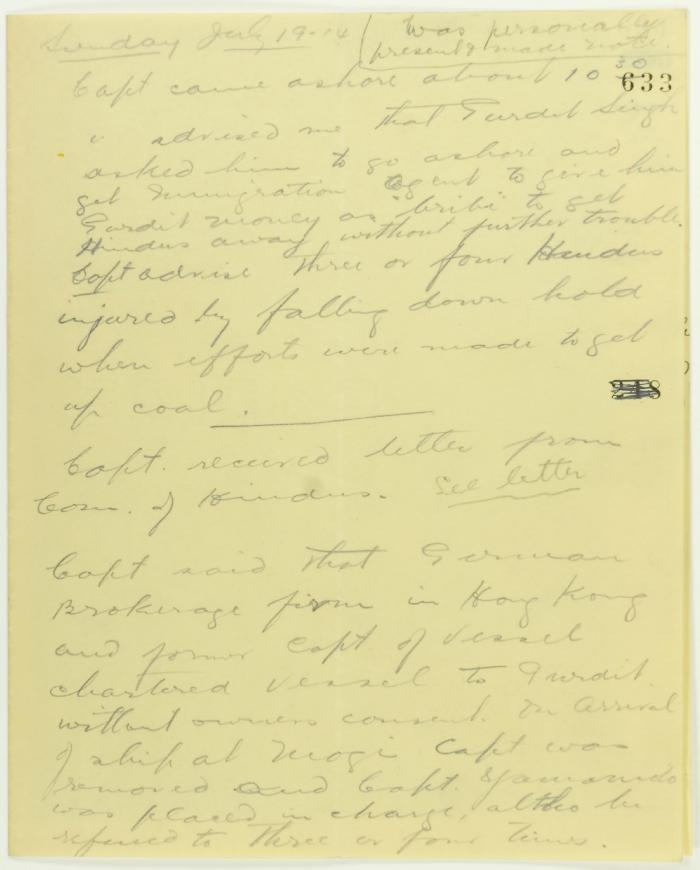 Sunday July 19-14 / Was personally
present & made note.
Capt came ashore about 10 30
633
" advised me that Gurdit Singh
asked him to go ashore and
get Immigration agent to give him
Gurdit money as "bribe" to get
Hindus away without further trouble.
Capt advise three or four Hindus
injured by falling down hold
when efforts were made to get
up coal.
Capt. received letter from
Com. of Hindus. See letter
Capt said that German
Brokerage firm in Hong Kong
and former Capt of vessel
chartered vessel to Gurdit
without owners consent. On arrival
of ship at Mogi Capt was
removed and Capt. Yamamoto
was placed in charge, altho he
refused to three or four times.